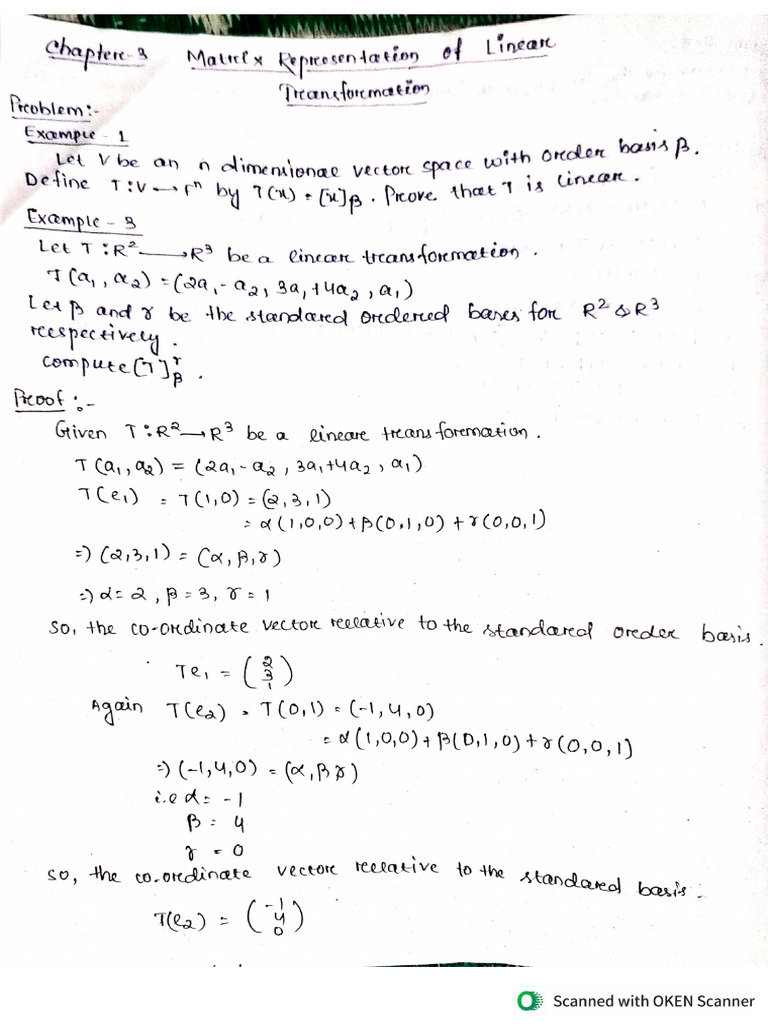 Chapter-3 Matrix Representation of Linear
Transformation
Problem:-
Example - 1
Let V be an n dimensional vector space with order basis β.
Define T:V→Fⁿ by T(x) = [x]β. Prove that T is linear.
Example - 3
Let T:R²→R³ be a linear transformation.
T(a₁, a₂) = (2a₁-a₂, 3a₁+4a₂, a₁)
Let β and γ be the standard ordered bases for R² & R³
respectively.
compute [T]ᵞβ.
Proof:-
Given T:R²→R³ be a linear transformation.
T(a₁, a₂) = (2a₁-a₂, 3a₁+4a₂, a₁)
T(e₁) = T(1,0) = (2,3,1)
= α(1,0,0)+β(0,1,0)+γ(0,0,1)
⇒(2,3,1) = (α,β,γ)
⇒α=2, β=3, γ=1
So, the co-ordinate vector relative to the standard order basis.
Te₁ = (2 3 1)
Again T(e₂) = T(0,1) = (-1,4,0)
= α(1,0,0)+β(0,1,0)+γ(0,0,1)
⇒(-1,4,0) = (α,βγ)
i.e α= -1
β = 4
γ = 0
So, the co-ordinate vector relative to the standard basis.
T(e₂) = (-1 4 0)
Scanned with OKEN Scanner